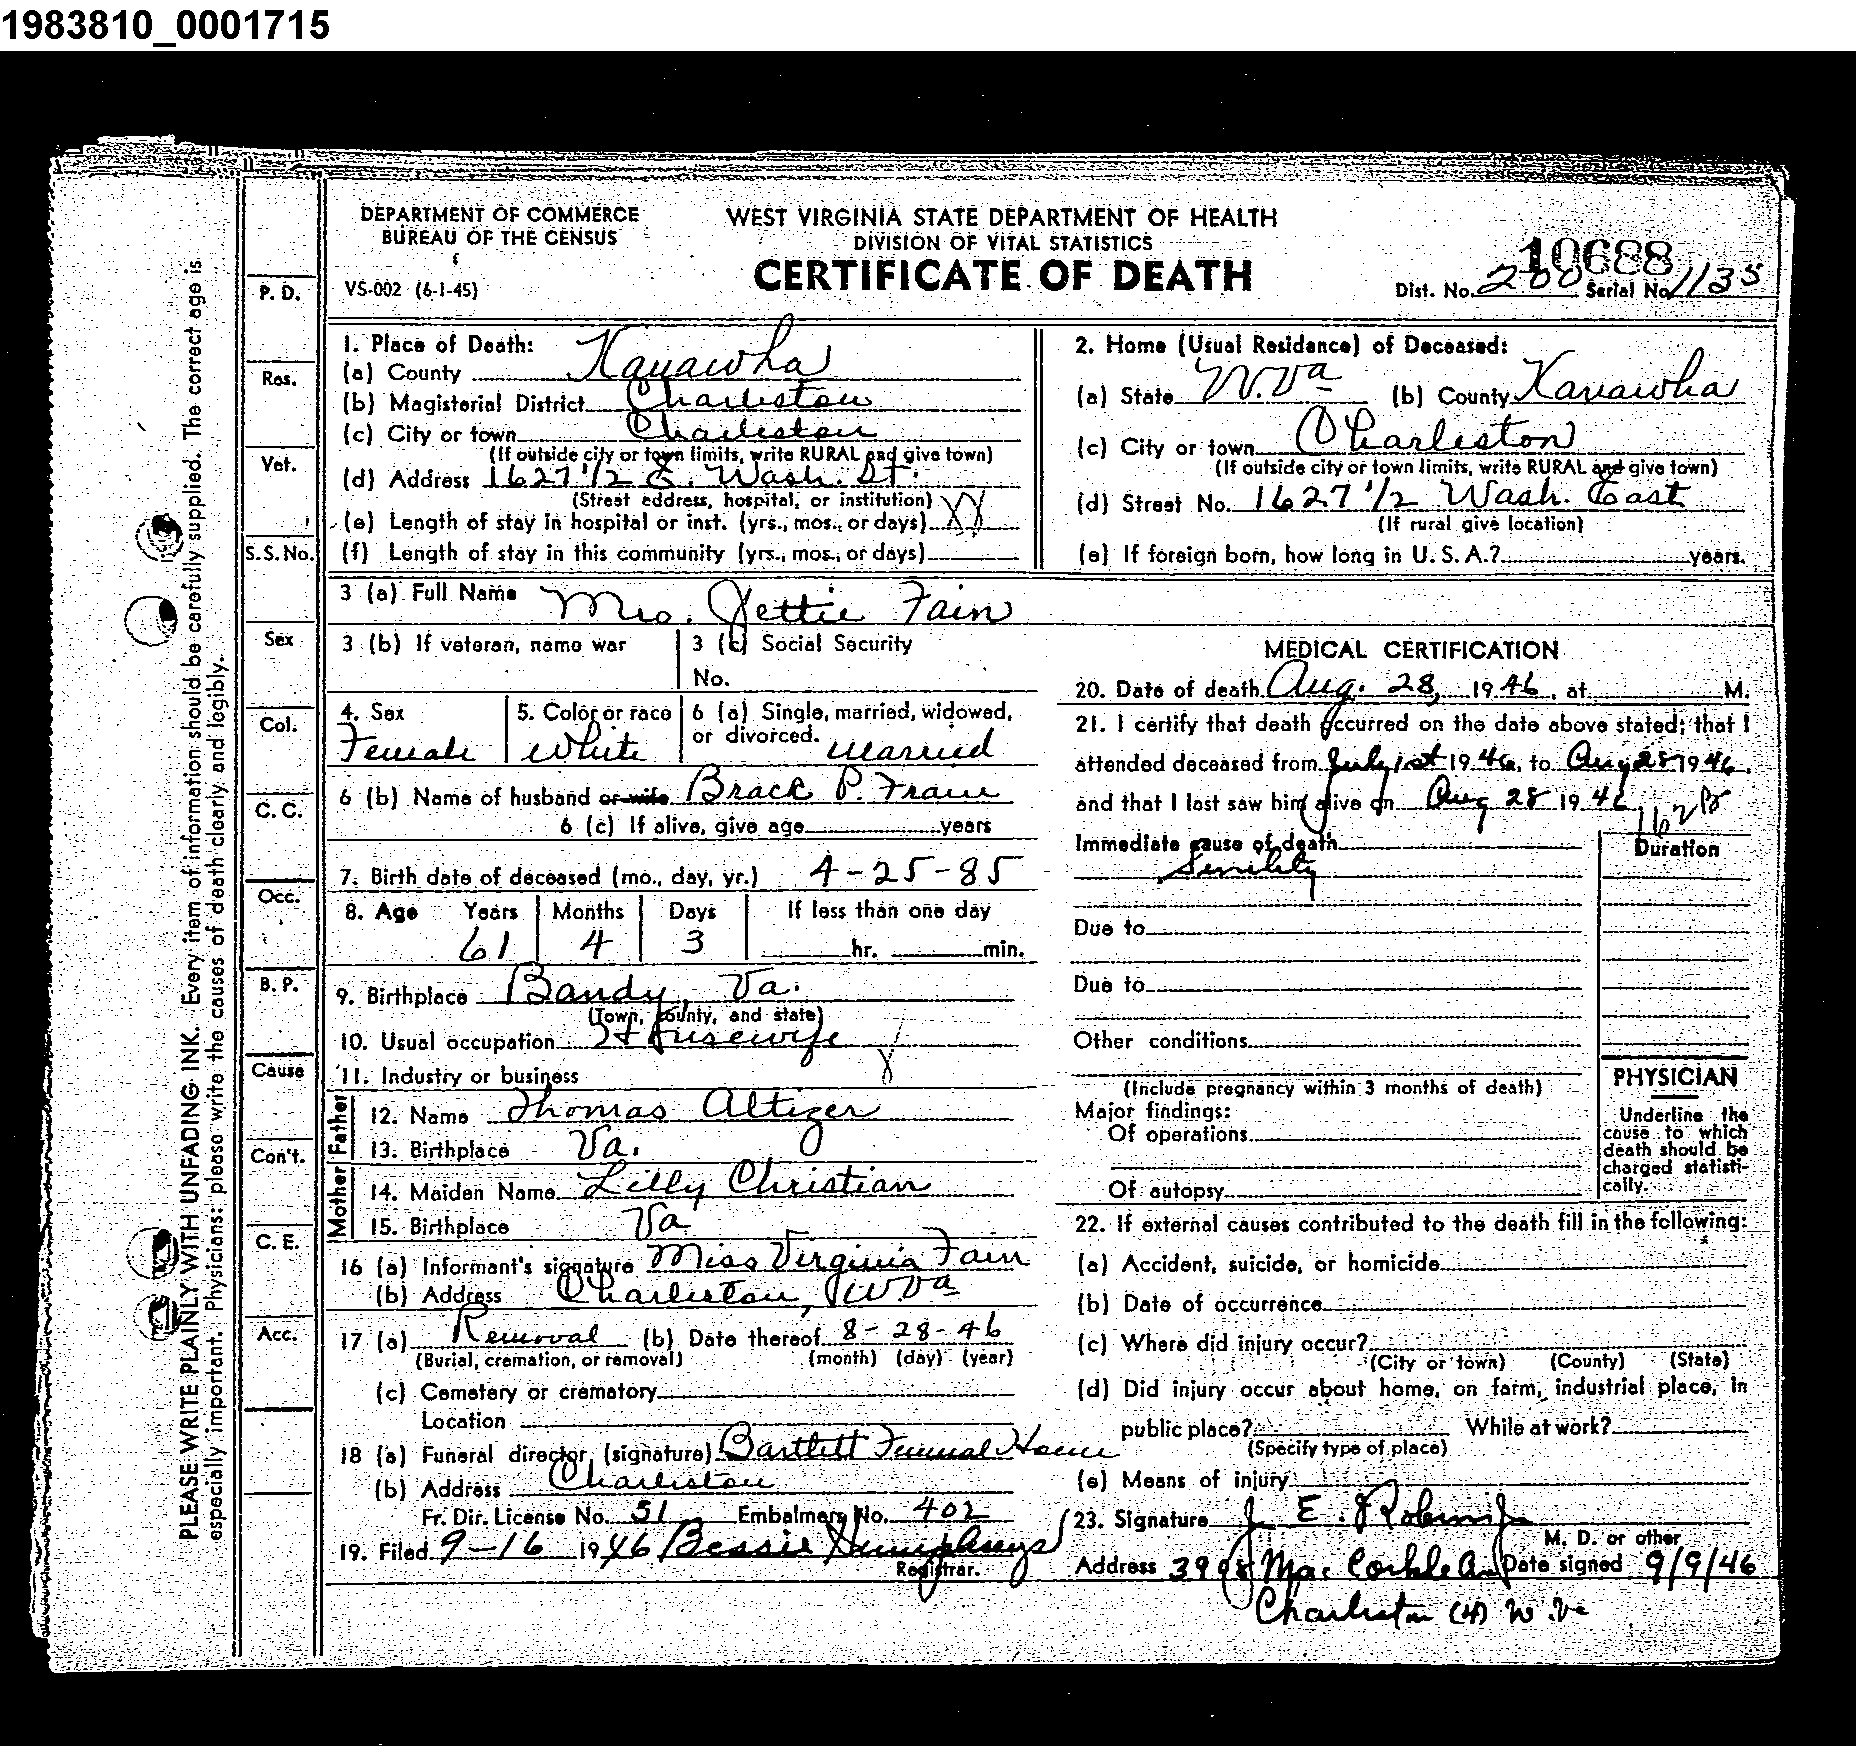 1983810_0001715
DEPARTMENT OF COMMERCE
BUREAU OF THE CENSUS
VS-002 (6-1-45)
WEST VIRGINIA STATE DEPARTMENT OF HEALTH
DIVISION OF VITAL STATISTICS
CERTIFICATE OF DEATH
10688
Dist. No. 200 Serial No. 1135
PLEASE WRITE PLAINLY WITH UNFADING INK. Every item of information should be carefully supplied. The correct age is
especially important. Physicians: please write the causes of death clearly and legibly.
P. D.
Res.
Vet.
S.S. No.
Sex
Col.
C. C.
Occ.
B. P.
Cause
Con't.
C. E.
Acc.
1. Place of Death:
(a) County Kanawha
(b) Magisterial District Charleston
(c) City or town Charleston
(If outside city or town limits, write RURAL and give town)
(d) Address 1627 1/2 E. Wash. St.
(Street address, hospital, or institution)
(e) Length of stay in hospital or inst. (yrs., mos., or days) XX
(f) Length of stay in this community (yrs., mos., or days)
2. Home (Usual Residence) of Deceased:
(a) State W. Va (b) County Kanawha
(c) City or town Charleston
(If outside city or town limits, write RURAL and give town)
(d) Street No. 1627 1/2 Wash. East
(If rural give location)
(e) If foreign born, how long in U. S. A.? years.
3 (a) Full Name Mrs. Jettie Fain
3 (b) If veteran, name war
3 (c) Social Security
No.
4. Sex Female
5. Color or race White
6 (a) Single, married, widowed,
or divorced. Married
6 (b) Name of husband or wife Brack P. Frain
6 (c) If alive, give age years
7. Birth date of deceased (mo., day, yr.) 4-25-85
8. Age Years Months Days If less than one day
61 4 3 hr. min.
9. Birthplace Bandy, Va.
(Town, county, and state)
10. Usual occupation Housewife
11. Industry or business X
Father
12. Name Thomas Altizer
13. Birthplace Va.
Mother
14. Maiden Name Lilly Christian
15. Birthplace Va
16 (a) Informant's signature Miss Virginia Fain
(b) Address Charleston, W. Va
17 (a) Removal (b) Date thereof 8-28-46
(Burial, cremation, or removal) (month) (day) (year)
(c) Cemetery or crematory
Location
18 (a) Funeral director (signature) Bartlett Funeral Home
(b) Address Charleston
Fr. Dir. License No. 51 Embalmers No. 402
19. Filed 9-16 1946 Bessie Humphreys
Registrar.
MEDICAL CERTIFICATION
20. Date of death Aug. 28, 1946, at M.
21. I certify that death occurred on the date above stated; that I
attended deceased from July 1st 1946, to Aug 28 1946,
and that I last saw him alive on Aug 28 1946
Immediate cause of death
Duration
Senility
Due to
Due to
Other conditions
(Include pregnancy within 3 months of death)
Major findings:
Of operations
Of autopsy
PHYSICIAN
Underline the
cause to which
death should be
charged statisti-
cally.
22. If external causes contributed to the death fill in the following:
(a) Accident, suicide, or homicide
(b) Date of occurrence
(c) Where did injury occur?
(City or town) (County) (State)
(d) Did injury occur about home, on farm, industrial place, in
public place? While at work?
(Specify type of place)
(e) Means of injury
23. Signature J. E. Robins Jr
M. D. or other
Address Mac Corkle Av Date signed 9/9/46
Charleston (4) W. Va